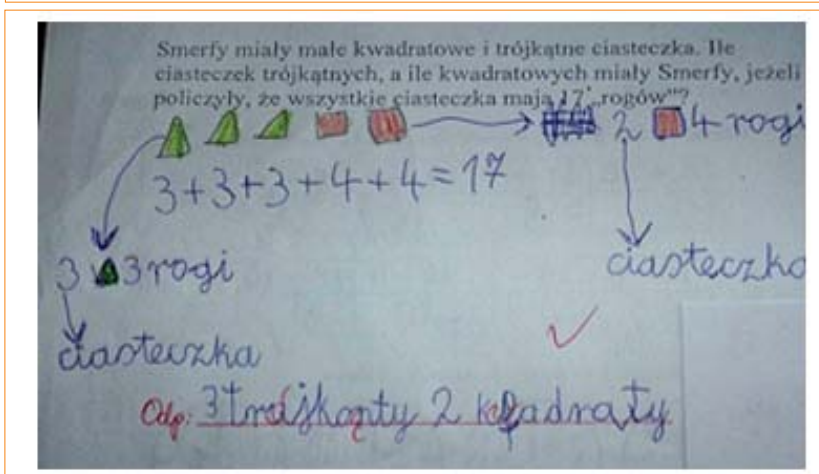 Smerfy miały małe kwadratowe i trójkątne ciasteczka. Ile
ciasteczek trójkątnych, a ile kwadratowych miały Smerfy, jeżeli
policzyły, że wszystkie ciasteczka mają 17 „rogów”?
2 4 rogi
3+3+3+4+4=17
3 3 rogi
ciasteczka
ciasteczka
Odp: 3 trójkąnty 2 kwadraty